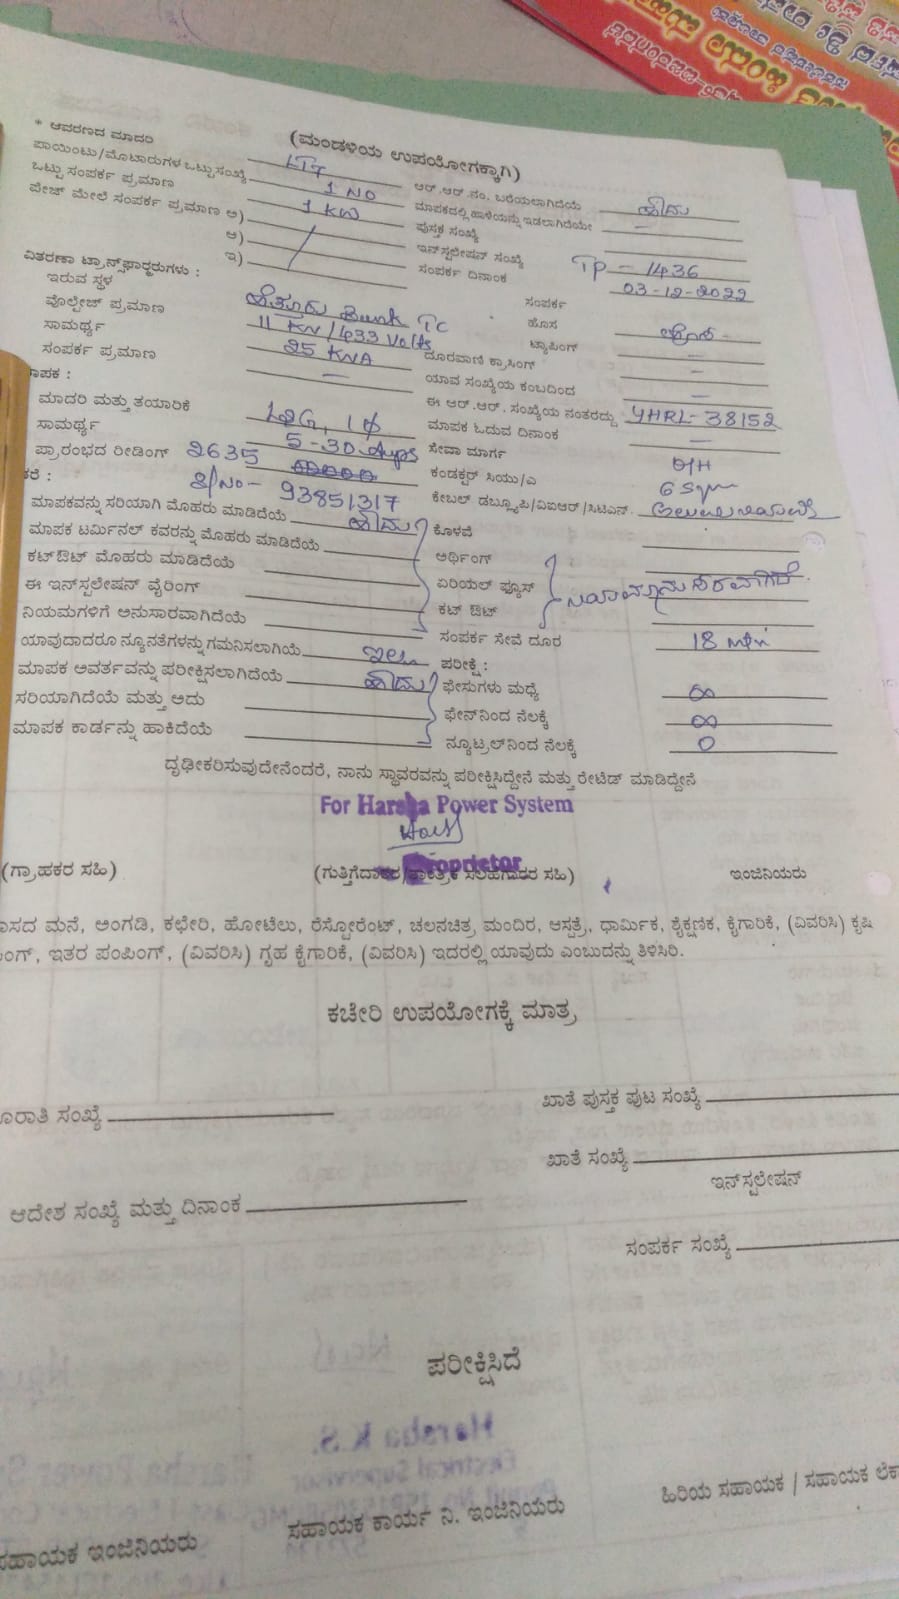 (ಮಂಡಳಿಯ ಉಪಯೋಗಕ್ಕಾಗಿ)
* ಆವರಣದ ಮಾದರಿ
ಪಾಯಿಂಟು/ಮೊಟಾರುಗಳ ಒಟ್ಟುಸಂಖ್ಯೆ 1 NO
ಒಟ್ಟು ಸಂಪರ್ಕ ಪ್ರಮಾಣ 1 KW
ಪೇಜ್ ಮೇಲೆ ಸಂಪರ್ಕ ಪ್ರಮಾಣ ಅ)
ಆ)
ಇ)
ವಿತರಣಾ ಟ್ರಾನ್ಸ್‌ಫಾರ್ಮರುಗಳು :
ಇರುವ ಸ್ಥಳ Bank TC
ವೊಲ್ಟೇಜ್ ಪ್ರಮಾಣ 11 KV/433 Volts
ಸಾಮರ್ಥ್ಯ 25 KVA
ಸಂಪರ್ಕ ಪ್ರಮಾಣ —
ಾಪಕ :
ಮಾದರಿ ಮತ್ತು ತಯಾರಿಕೆ L&G, 1 φ
ಸಾಮರ್ಥ್ಯ 5-30 Amps
ಪ್ರಾರಂಭದ ರೀಡಿಂಗ್ 2635
S/No - 93851317
ಮಾಪಕವನ್ನು ಸರಿಯಾಗಿ ಮೊಹರು ಮಾಡಿದೆಯೆ ಹೌದು
ಮಾಪಕ ಟರ್ಮಿನಲ್ ಕವರನ್ನು ಮೊಹರು ಮಾಡಿದೆಯೆ
ಕಟ್‌ಔಟ್ ಮೊಹರು ಮಾಡಿದೆಯೆ
ಈ ಇನ್‌ಸ್ಟಲೇಷನ್ ವೈರಿಂಗ್
ನಿಯಮಗಳಿಗೆ ಅನುಸಾರವಾಗಿದೆಯೆ
ಯಾವುದಾದರೂ ನ್ಯೂನತೆಗಳನ್ನುಗಮನಿಸಲಾಗಿಯೆ ಇಲ್ಲ
ಮಾಪಕ ಅವರ್ತವನ್ನು ಪರೀಕ್ಷಿಸಲಾಗಿದೆಯೆ ಹೌದು
ಸರಿಯಾಗಿದೆಯೆ ಮತ್ತು ಅದು
ಮಾಪಕ ಕಾರ್ಡನ್ನು ಹಾಕಿದೆಯೆ
ಆರ್.ಆರ್.ನಂ. ಬರೆಯಲಾಗಿದೆಯೆ ಹೌದು
ಮಾಪಕದಲ್ಲಿ ಹಾಳೆಯನ್ನು ಇಡಲಾಗಿದೆಯೇ —
ಪುಸ್ತಕ ಸಂಖ್ಯೆ
ಇನ್‌ಸ್ಟಲೇಷನ್ ಸಂಖ್ಯೆ TP - 1436
ಸಂಪರ್ಕ ದಿನಾಂಕ 03-12-2022
ಸಂಪರ್ಕ
ಹೊಸ
ಟ್ಯಾಪಿಂಗ್ —
ದೂರವಾಣಿ ಕ್ರಾಸಿಂಗ್ —
ಯಾವ ಸಂಖ್ಯೆಯ ಕಂಬದಿಂದ —
ಈ ಆರ್.ಆರ್. ಸಂಖ್ಯೆಯ ನಂತರದ್ದು YHRL-38152
ಮಾಪಕ ಓದುವ ದಿನಾಂಕ —
ಸೇವಾ ಮಾರ್ಗ O/H
ಕಂಡಕ್ಟರ್ ಸಿಯು/ಎ 6 Sqmm
ಕೇಬಲ್ ಡಬ್ಲ್ಯೂಪಿ/ವಿಐಆರ್/ಸಿಟಿಎಸ್.
ಕೊಳವೆ
ಅರ್ಥಿಂಗ್
ಏರಿಯಲ್ ಫ್ಯೂಸ್ ನಿಯಮಾನುಸಾರವಾಗಿದೆ.
ಕಟ್ ಔಟ್
ಸಂಪರ್ಕ ಸೇವೆ ದೂರ 18 mtr
ಪರೀಕ್ಷೆ :
ಫೇಸುಗಳು ಮಧ್ಯೆ ∞
ಫೇಸ್‌ನಿಂದ ನೆಲಕ್ಕೆ ∞
ನ್ಯೂಟ್ರಲ್‌ನಿಂದ ನೆಲಕ್ಕೆ 0
ದೃಢೀಕರಿಸುವುದೇನೆಂದರೆ, ನಾನು ಸ್ಥಾವರವನ್ನು ಪರೀಕ್ಷಿಸಿದ್ದೇನೆ ಮತ್ತು ರೇಟೆಡ್ ಮಾಡಿದ್ದೇನೆ
For Harsha Power System
Proprietor
(ಗ್ರಾಹಕರ ಸಹಿ) (ಗುತ್ತಿಗೆದಾರರ/ತಾಂತ್ರಿಕ ಸಲಹೆಗಾರರ ಸಹಿ) ಇಂಜಿನಿಯರು
ಾಸದ ಮನೆ, ಅಂಗಡಿ, ಕಛೇರಿ, ಹೋಟೆಲು, ರೆಸ್ಟೋರೆಂಟ್, ಚಲನಚಿತ್ರ ಮಂದಿರ, ಆಸ್ಪತ್ರೆ, ಧಾರ್ಮಿಕ, ಶೈಕ್ಷಣಿಕ, ಕೈಗಾರಿಕೆ, (ವಿವರಿಸಿ) ಕೃಷಿ
ಂಗ್, ಇತರ ಪಂಪಿಂಗ್, (ವಿವರಿಸಿ) ಗೃಹ ಕೈಗಾರಿಕೆ, (ವಿವರಿಸಿ) ಇದರಲ್ಲಿ ಯಾವುದು ಎಂಬುದನ್ನು ತಿಳಿಸಿರಿ.
ಕಚೇರಿ ಉಪಯೋಗಕ್ಕೆ ಮಾತ್ರ
ೂರಾತಿ ಸಂಖ್ಯೆ
ಖಾತೆ ಪುಸ್ತಕ ಪುಟ ಸಂಖ್ಯೆ
ಖಾತೆ ಸಂಖ್ಯೆ
ಇನ್‌ಸ್ಟಲೇಷನ್
ಆದೇಶ ಸಂಖ್ಯೆ ಮತ್ತು ದಿನಾಂಕ
ಸಂಪರ್ಕ ಸಂಖ್ಯೆ
ಪರೀಕ್ಷಿಸಿದೆ
ಸಹಾಯಕ ಇಂಜಿನಿಯರು ಸಹಾಯಕ ಕಾರ್ಯ ನಿ. ಇಂಜಿನಿಯರು ಹಿರಿಯ ಸಹಾಯಕ / ಸಹಾಯಕ ಲೆಕ್ಕಾ